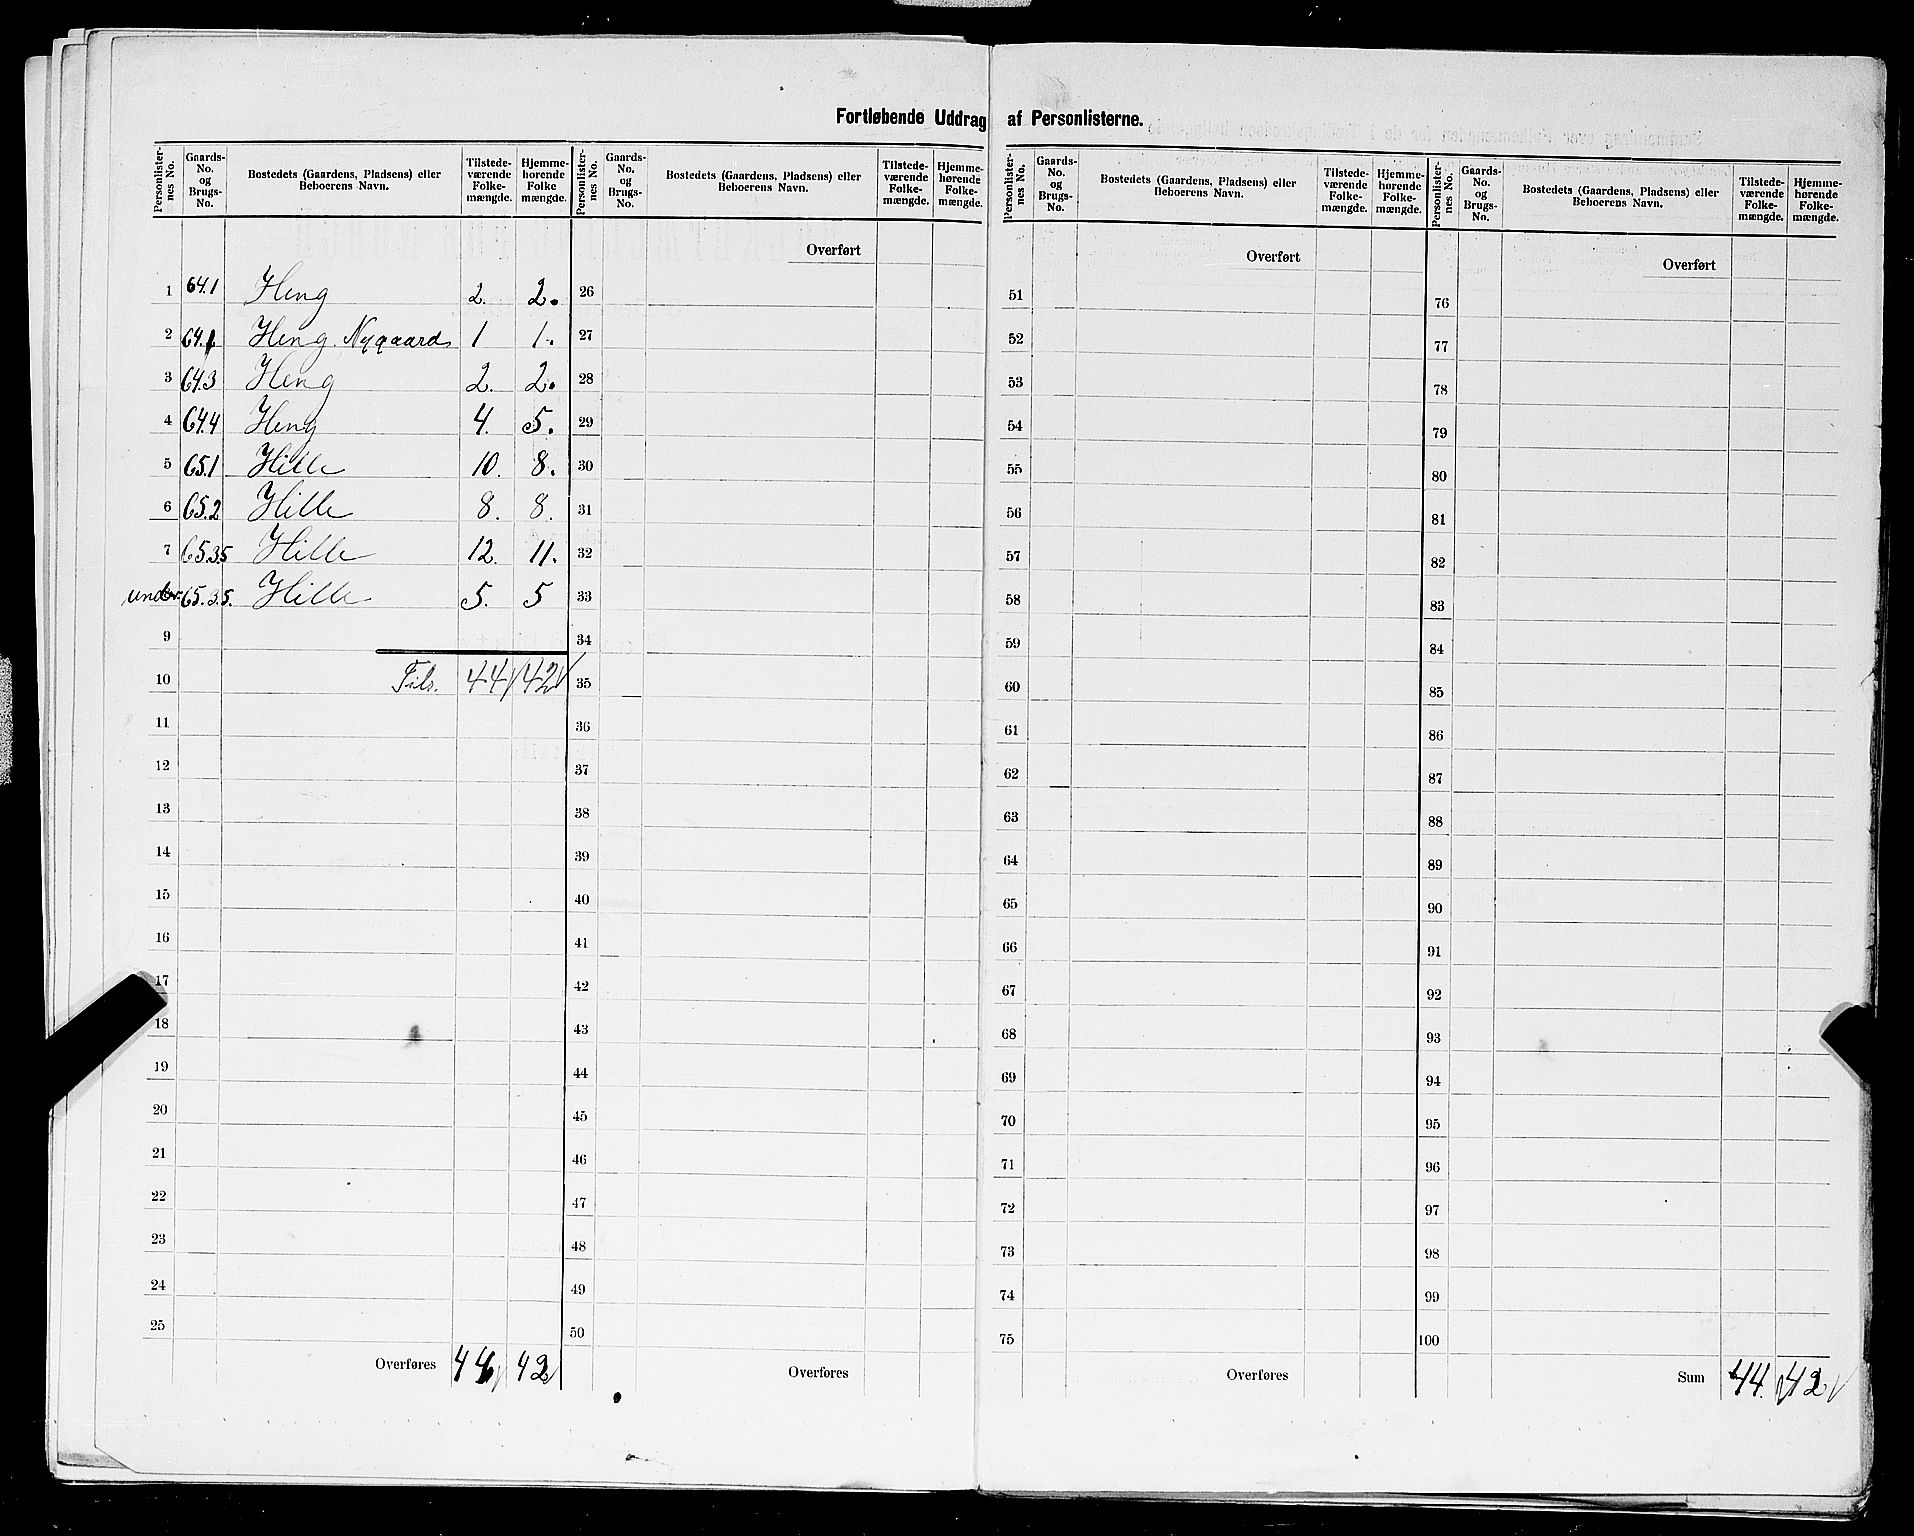 Fortløbende Uddrag af Personlisterne.
Personlister-nes No. Gaards-No. og Brugs-No. Bostedets (Gaardens, Pladsens) eller Beboerens Navn. Tilstede-værende Folke-mængde. Hjemme-hørende Folke mængde.
Personlister-nes No. Gaards-No. og Brugs-No. Bostedets (Gaardens, Pladsens) eller Beboerens Navn. Tilstede-værende Folke-mængde. Hjemme-hørende Folke-mængde.
Personlister-nes No. Gaards-No. og Brugs-No. Bostedets (Gaardens, Pladsens) eller Beboerens Navn. Tilstede-værende Folke-mængde. Hjemme-hørende Folke-mængde.
Personlister-nes No. Gaards-No. og Brugs-No. Bostedets (Gaardens, Pladsens) eller Beboerens Navn. Tilstede-værende Folke-mængde. Hjemme-hørende Folke-mængde.
Overført Overført Overført
1 64.1 Heng 2. 2. 26 51 76
2 64.1 Heng. Nygaard 1 1. 27 52 77
3 64.3 Heng 2. 2. 28 53 78
4 64.4 Heng 4. 5. 29 54 79
5 65.1 Hille 10. 8. 30 55 80
6 65.2 Hille 8. 8. 31 56 81
7 65.3.5 Hille 12. 11. 32 57 82
under 65.3.5. Hille 5. 5 33 58 83
9 34 59 84
10 Tils. 44 42 35 60 85
11 36 61 86
12 37 62 87
13 38 63 88
14 39 64 89
15 40 65 90
16 41 66 91
17 42 67 92
18 43 68 93
19 44 69 94
20 45 70 95
21 46 71 96
22 47 72 97
23 48 73 98
24 49 74 99
25 50 75 100
Overføres 44 42 Overføres Overføres Sum 44. 42